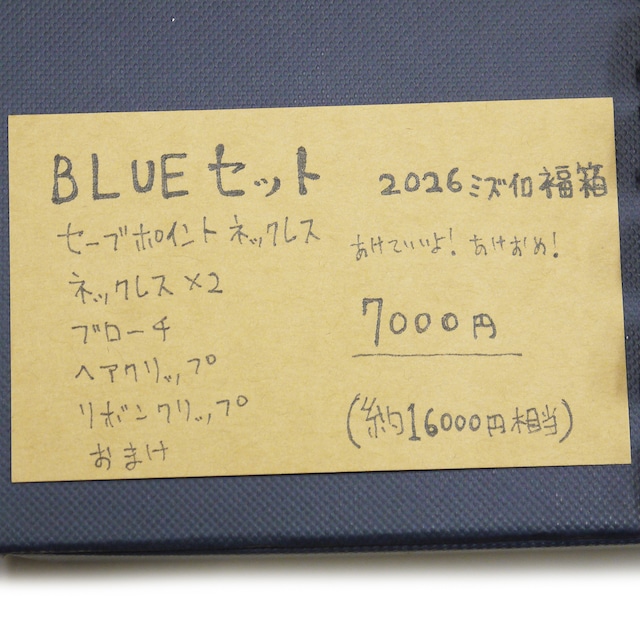 BLUEセット
セーブポイントネックレス
ネックレス×2
ブローチ
ヘアクリップ
リボンクリップ
おまけ
2026ミズイロ福箱
あけていいよ！あけおめ！
7000円
(約16000円相当)